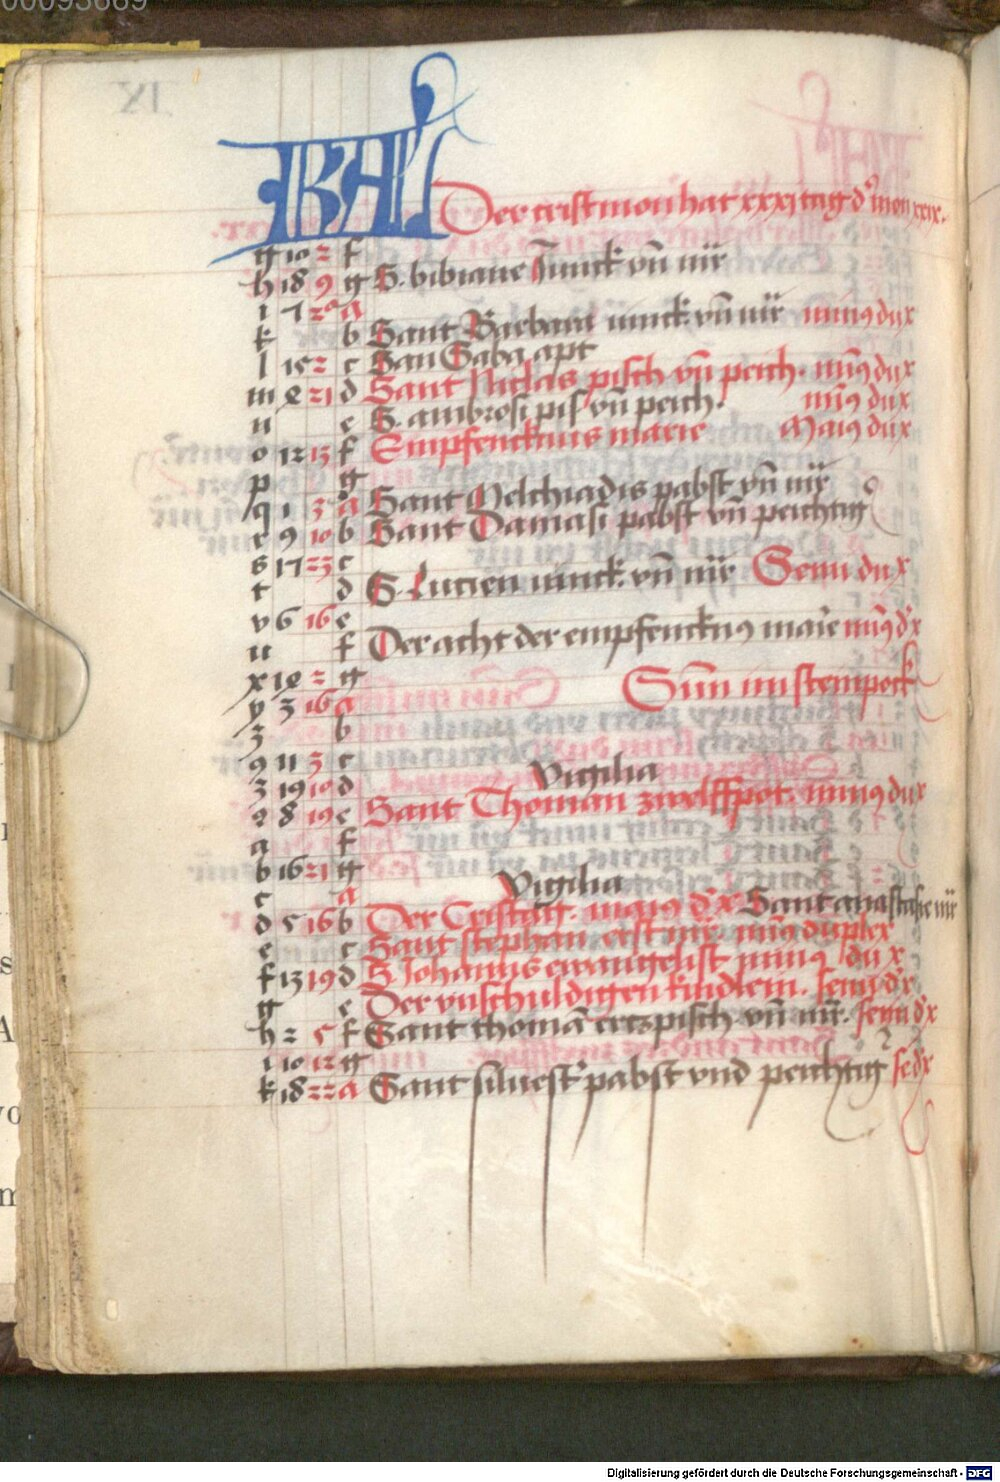 00093669
KAL Der cristmon hat xxxi tag d' mon xxix.
g 10 2 f
h 18 9 g S. bibiane Junck vn mr
i 7 a
k b Sant Barbara iunck vn mr minus dux
l 15 2 c San Saba apt
m 21 d Sant Niclas pisch vn peich. min9 dux
n e S. ambrosi pis vn peich. min9 dux
o 12 13 f Empfencknus marie Maius dux
p g
q 1 3 a Sant Melchiadis pabst vn mr
r 9 10 b Sant Damasi pabst vn peichtig
s 17 23 c
t d S. Lucien iunck vn mr Semi dux
v 6 16 e
u f Der acht der empfencknus marie min9 dx
x 18 2 g
y 3 16 a Sun im stempock
z b
9 11 3 c
3 19 10 d Vigilia
8 19 e Sant Thoman zwelffpot. minus dux
a f
b 16 21 g
c a Vigilia
d 5 16 b Der Cristtag. maius dx Sant anastasie mr
e c Sant stephan erst mr min9 duplex
f 13 19 d S. Johanns ewangelist minus dux
g e Der vnschuldigen kindlein. semi dx
h 2 5 f Sant thoma ertzpisch vn mr. semi dx
i 10 12 g
k 18 22 a Sant siluest' pabst vnd peichtig se dx
Digitalisierung gefördert durch die Deutsche Forschungsgemeinschaft - DFG